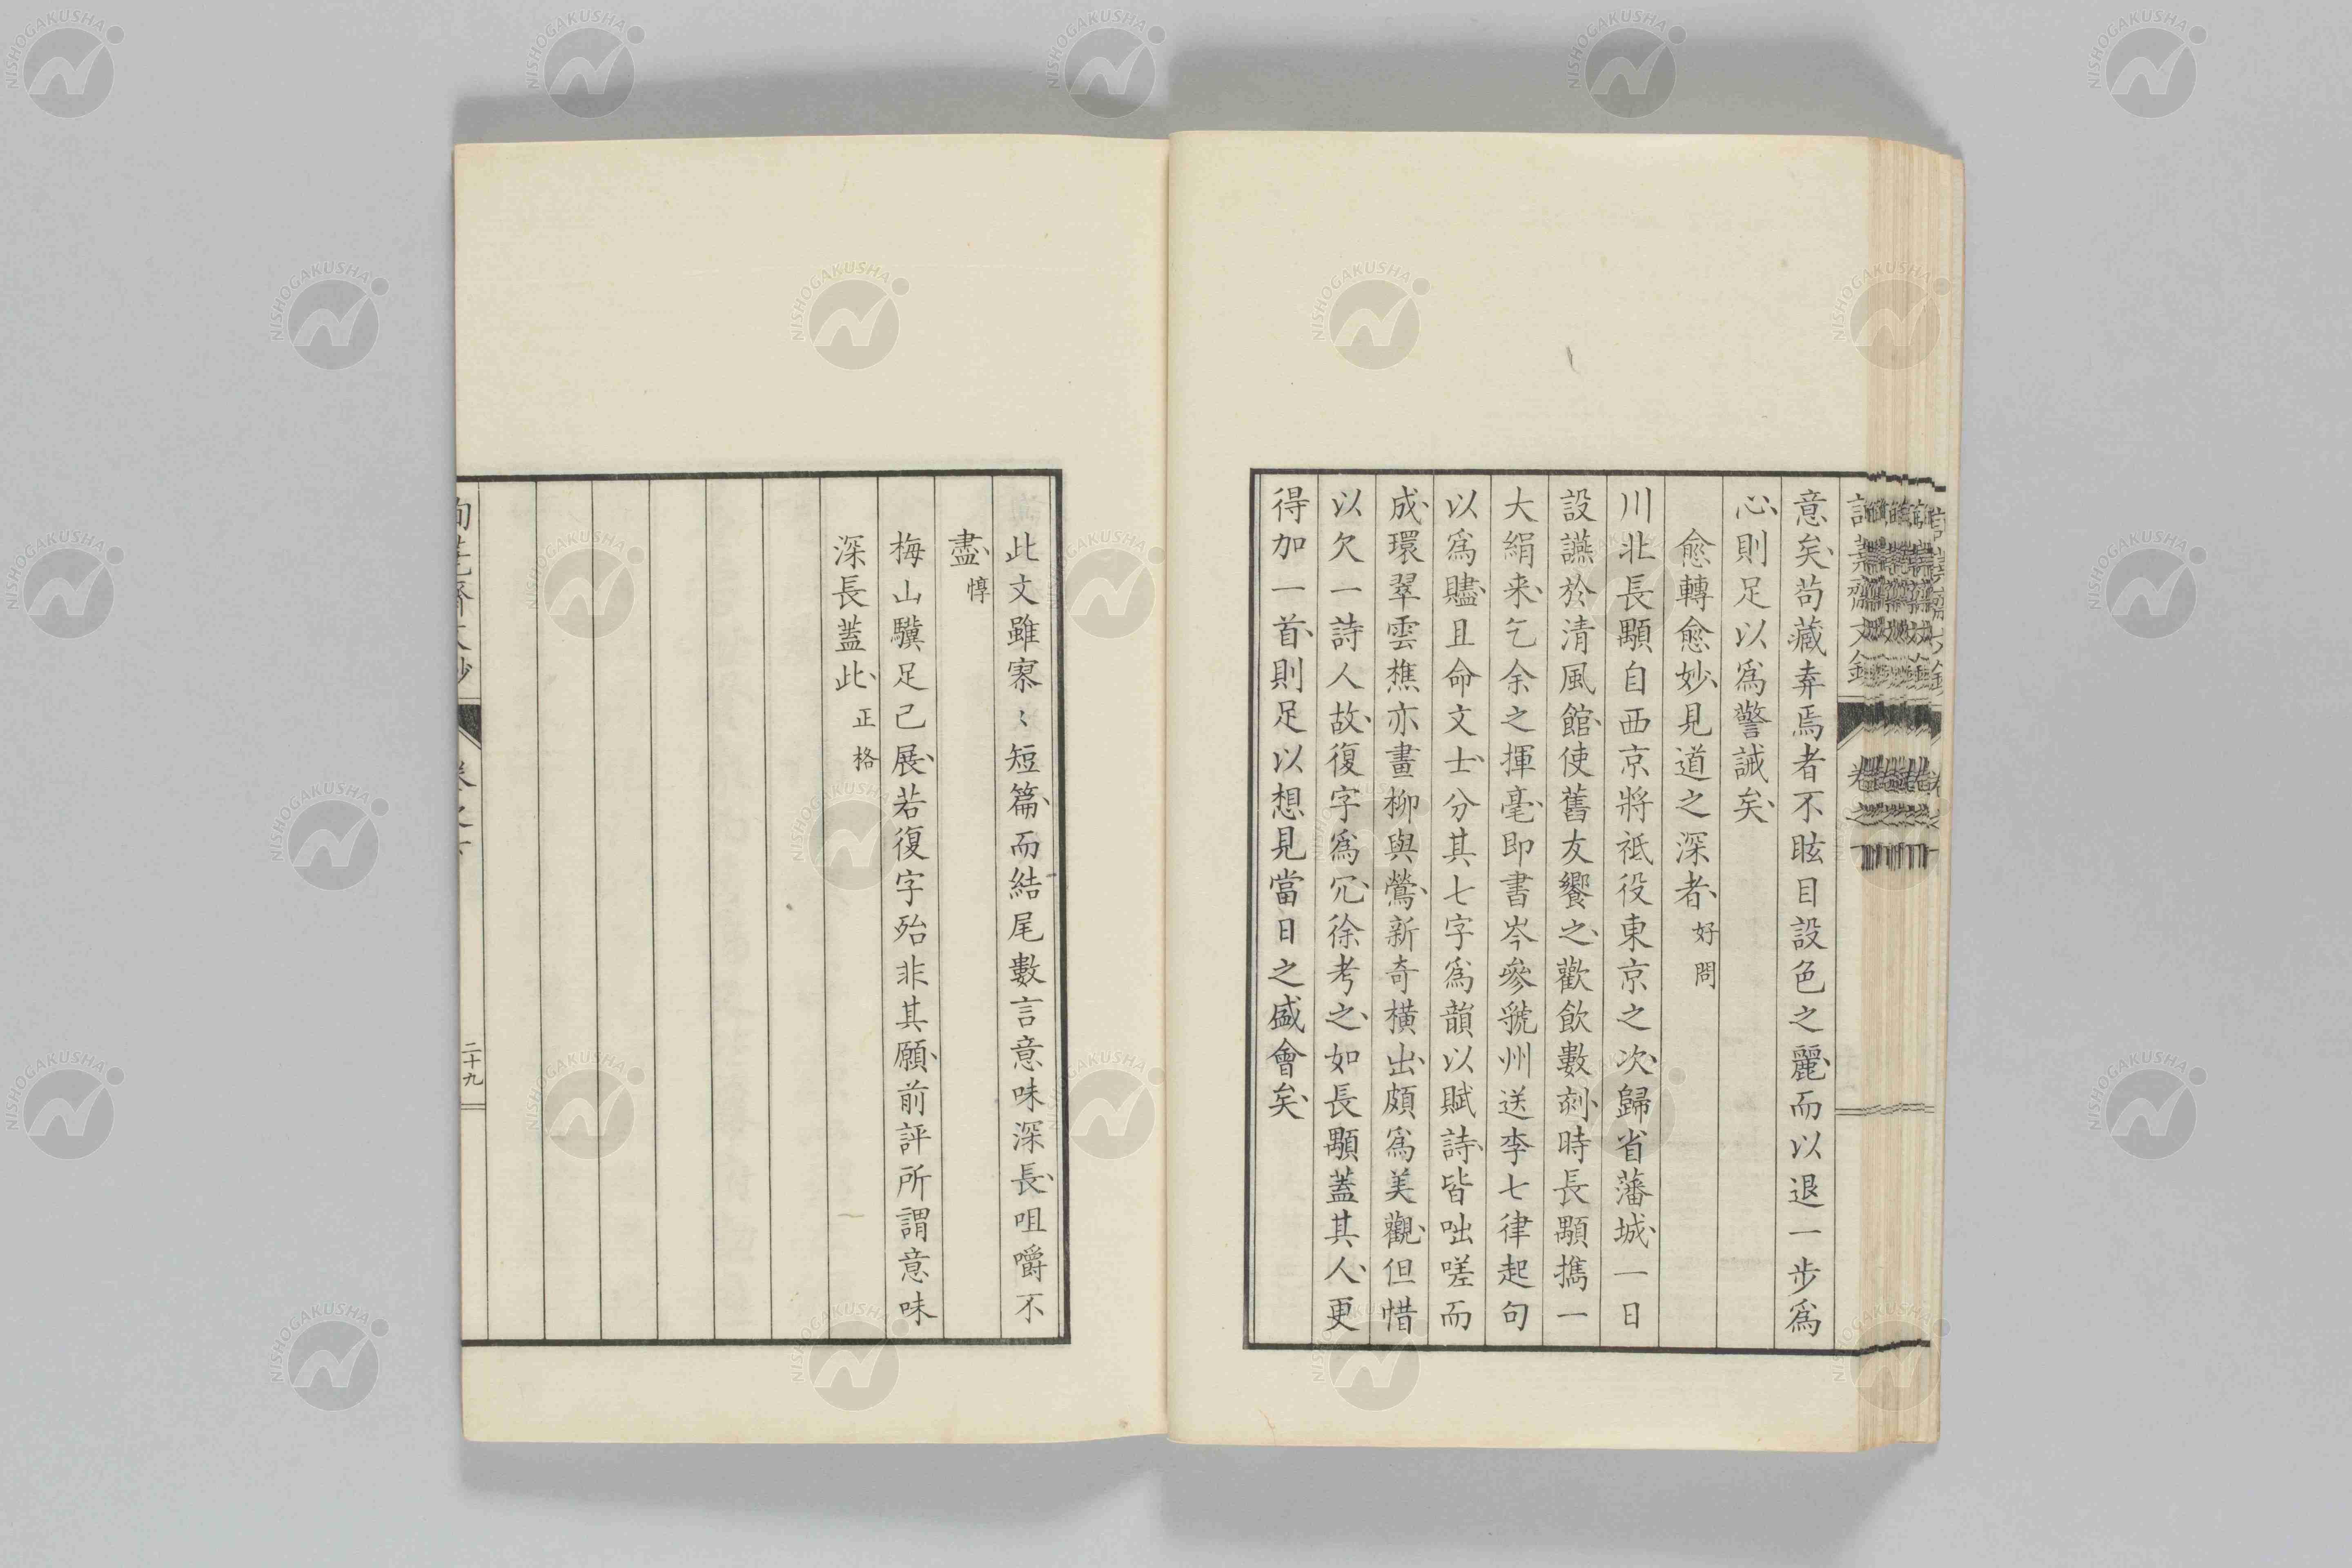 意矣、苟藏弆焉者不眩目設色之麗、而以退一步爲
心、則足以爲警誡矣、
愈轉愈妙、見道之深者、好問
川北長顒自西京將祗役東京之次、歸省藩城、一日
設讌於清風館、使舊友饗之、歡飲數刻、時長顒攜一
大絹来、乞余之揮毫、即書岑參虢州送李七律起句
以爲贐、且命文士、分其七字爲韻以賦詩、皆咄嗟而
成、環翠雲樵亦畫柳與鶯、新奇橫出、頗爲美觀、但惜
以欠一詩人、故復字爲冗、徐考之、如長顒蓋其人、更
得加一首、則足以想見當日之盛會矣、
此文雖寥〻短篇、而結尾數言意味深長、咀嚼不
盡、惇
梅山驥足已展、若復字殆非其願、前評所謂意味
深長蓋此、正格
二十九
NISHOGAKUSHA